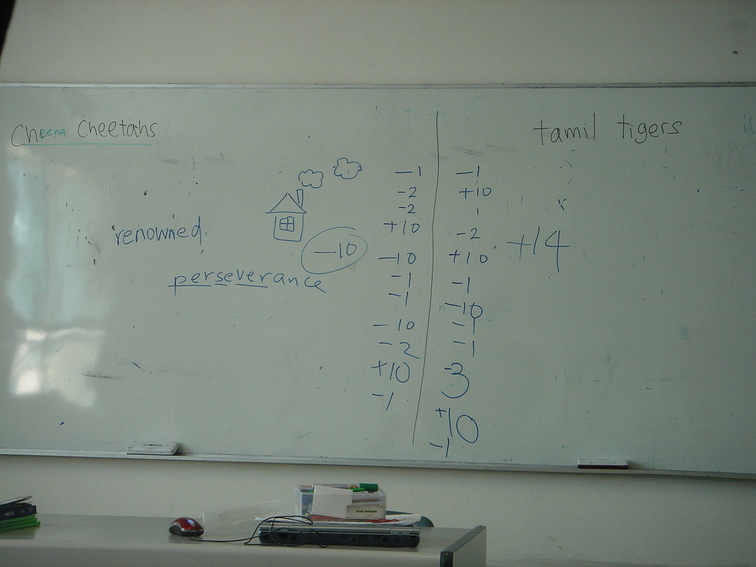 Cheena Cheetahs
tamil tigers
renowned
perseverance
-10
-1
-2
-2
+10
-10
-1
-1
-10
-2
+10
-1
-1
+10
1
-2
+10
-1
-10
-1
-1
-3
+10
-1
+14